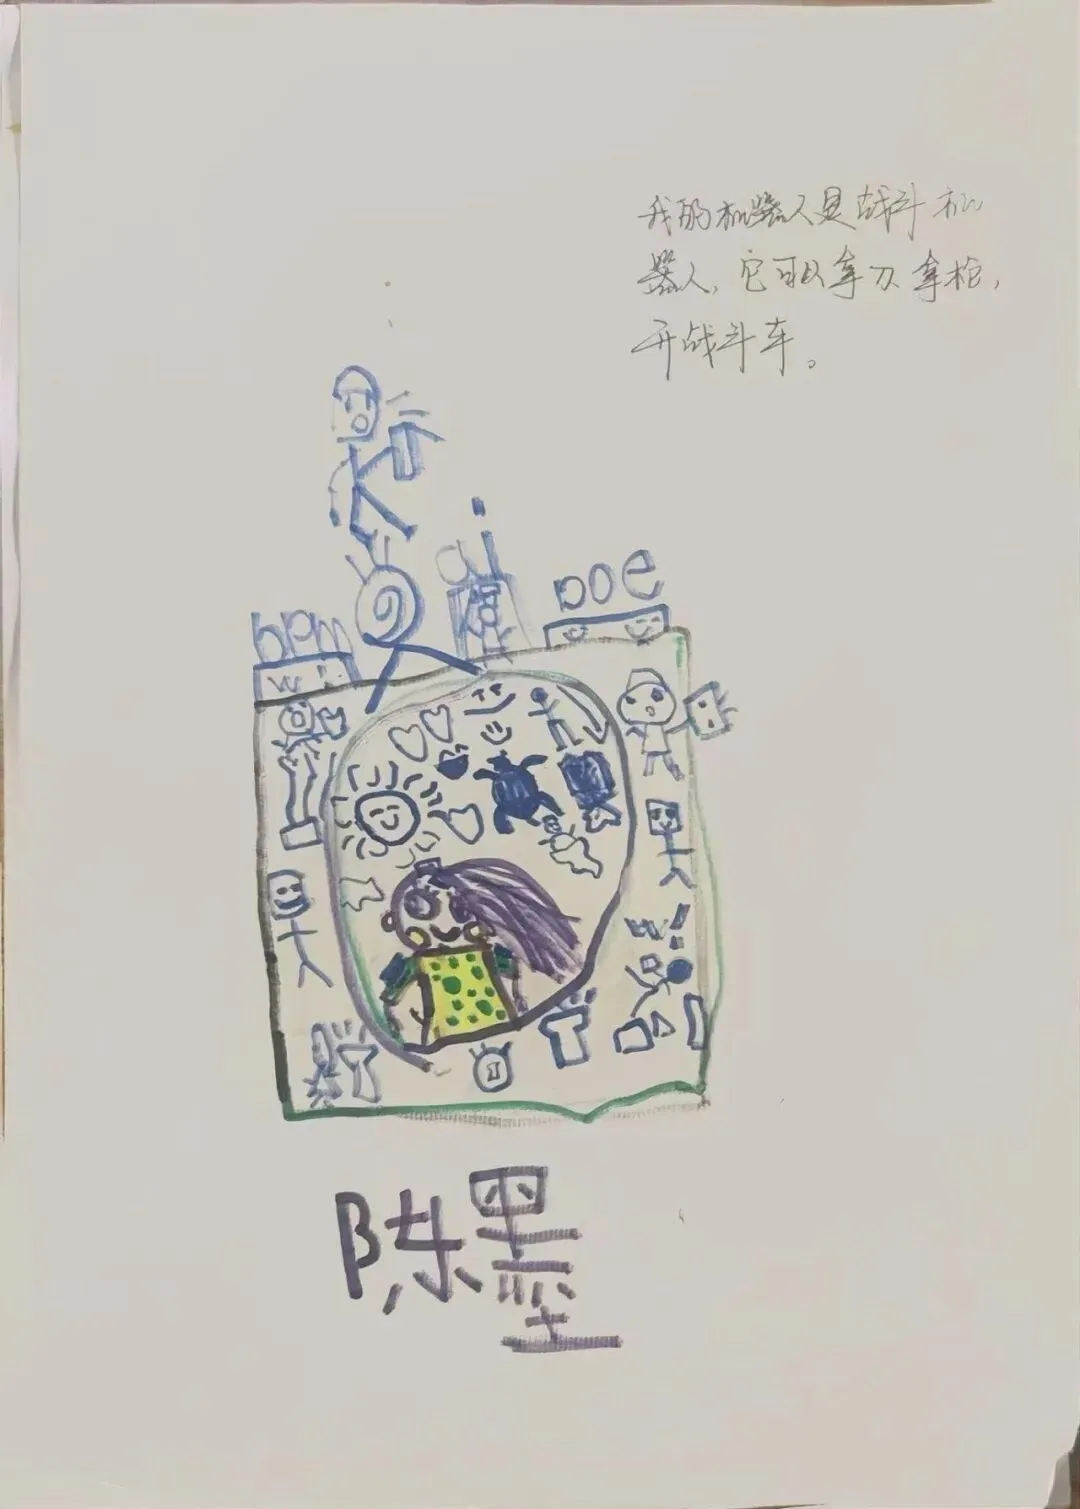 我的机器人是战斗机
器人，它可以拿刀拿枪，
开战斗车。
bpm
ai
poe
陈墨